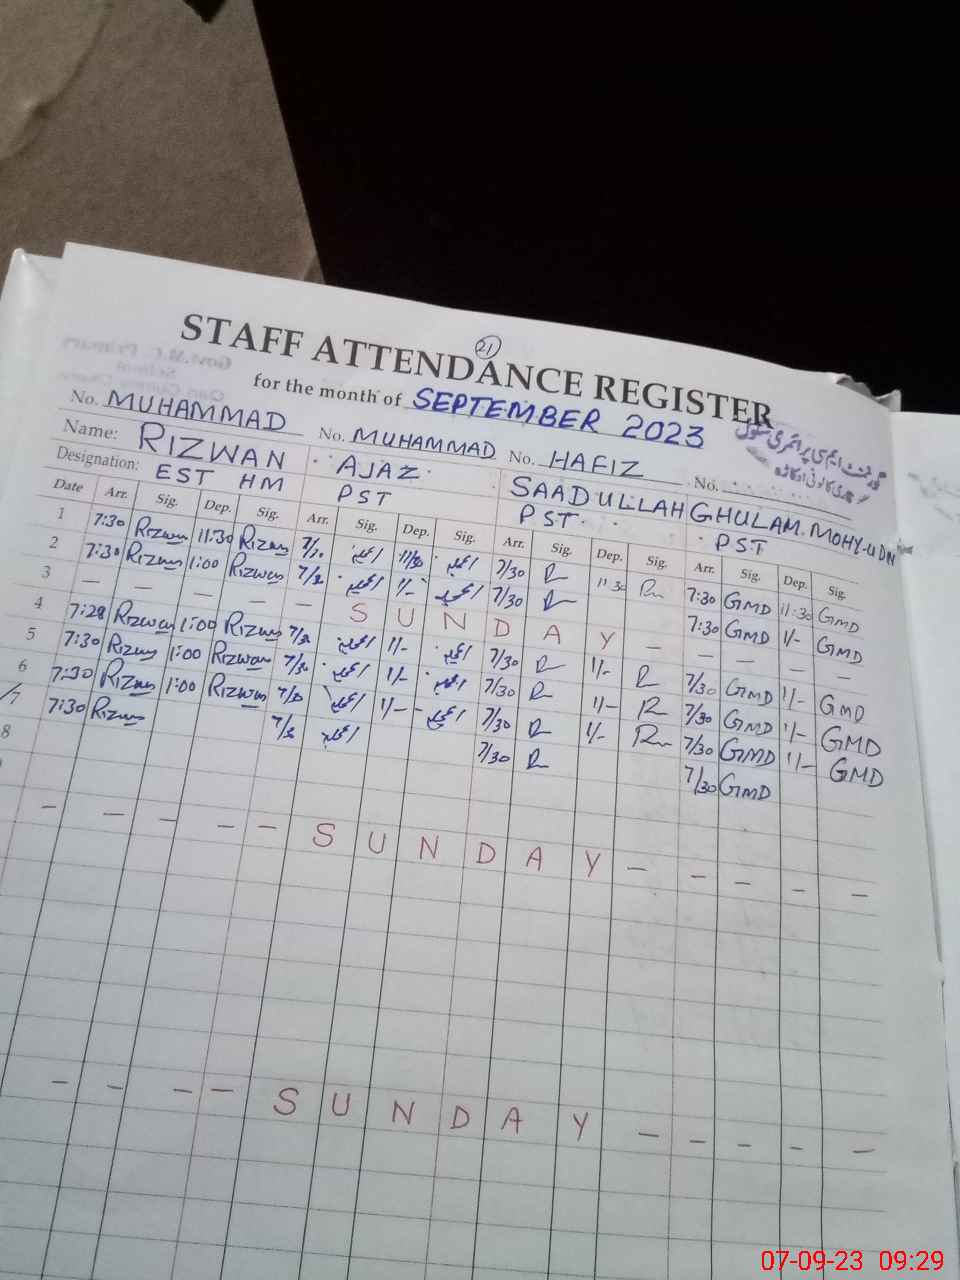 21
STAFF ATTENDANCE REGISTER
for the month of SEPTEMBER 2023
No. MUHAMMAD No. MUHAMMAD No. HAFIZ No.
Name: RIZWAN AJAZ SAADULLAH GHULAM. MOHY-UDN
Designation: EST HM PST PST PST
Date Arr. Sig. Dep. Sig. Arr. Sig. Dep. Sig. Arr. Sig. Dep. Sig. Arr. Sig. Dep. Sig.
1 7:30 Rizwan 11:30 Rizwan 7/30 11/30 7/30 R 11:30 R 7:30 GMD 11:30 GMD
2 7:30 Rizwan 1:00 Rizwan 7/30 1/- 7/30 R 7:30 GMD 1/- GMD
3 — — — — — S U N D A Y — — — — —
4 7:28 Rizwan 1:00 Rizwan 7/30 1/- 7/30 R 1/- R 7/30 GMD 1/- GMD
5 7:30 Rizwan 1:00 Rizwan 7/30 1/- 7/30 R 1/- R 7/30 GMD 1/- GMD
6 7:30 Rizwan 1:00 Rizwan 7/30 1/- 7/30 R 1/- R 7/30 GMD 1/- GMD
7 7:30 Rizwan 7/30 7/30 R 7/30 GMD
8
— — — — — S U N D A Y — — — — —
— — — — S U N D A Y — — — — —
07-09-23 09:29